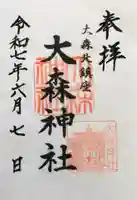 奉拝
大森北鎮座
大森神社
令和七年六月七日